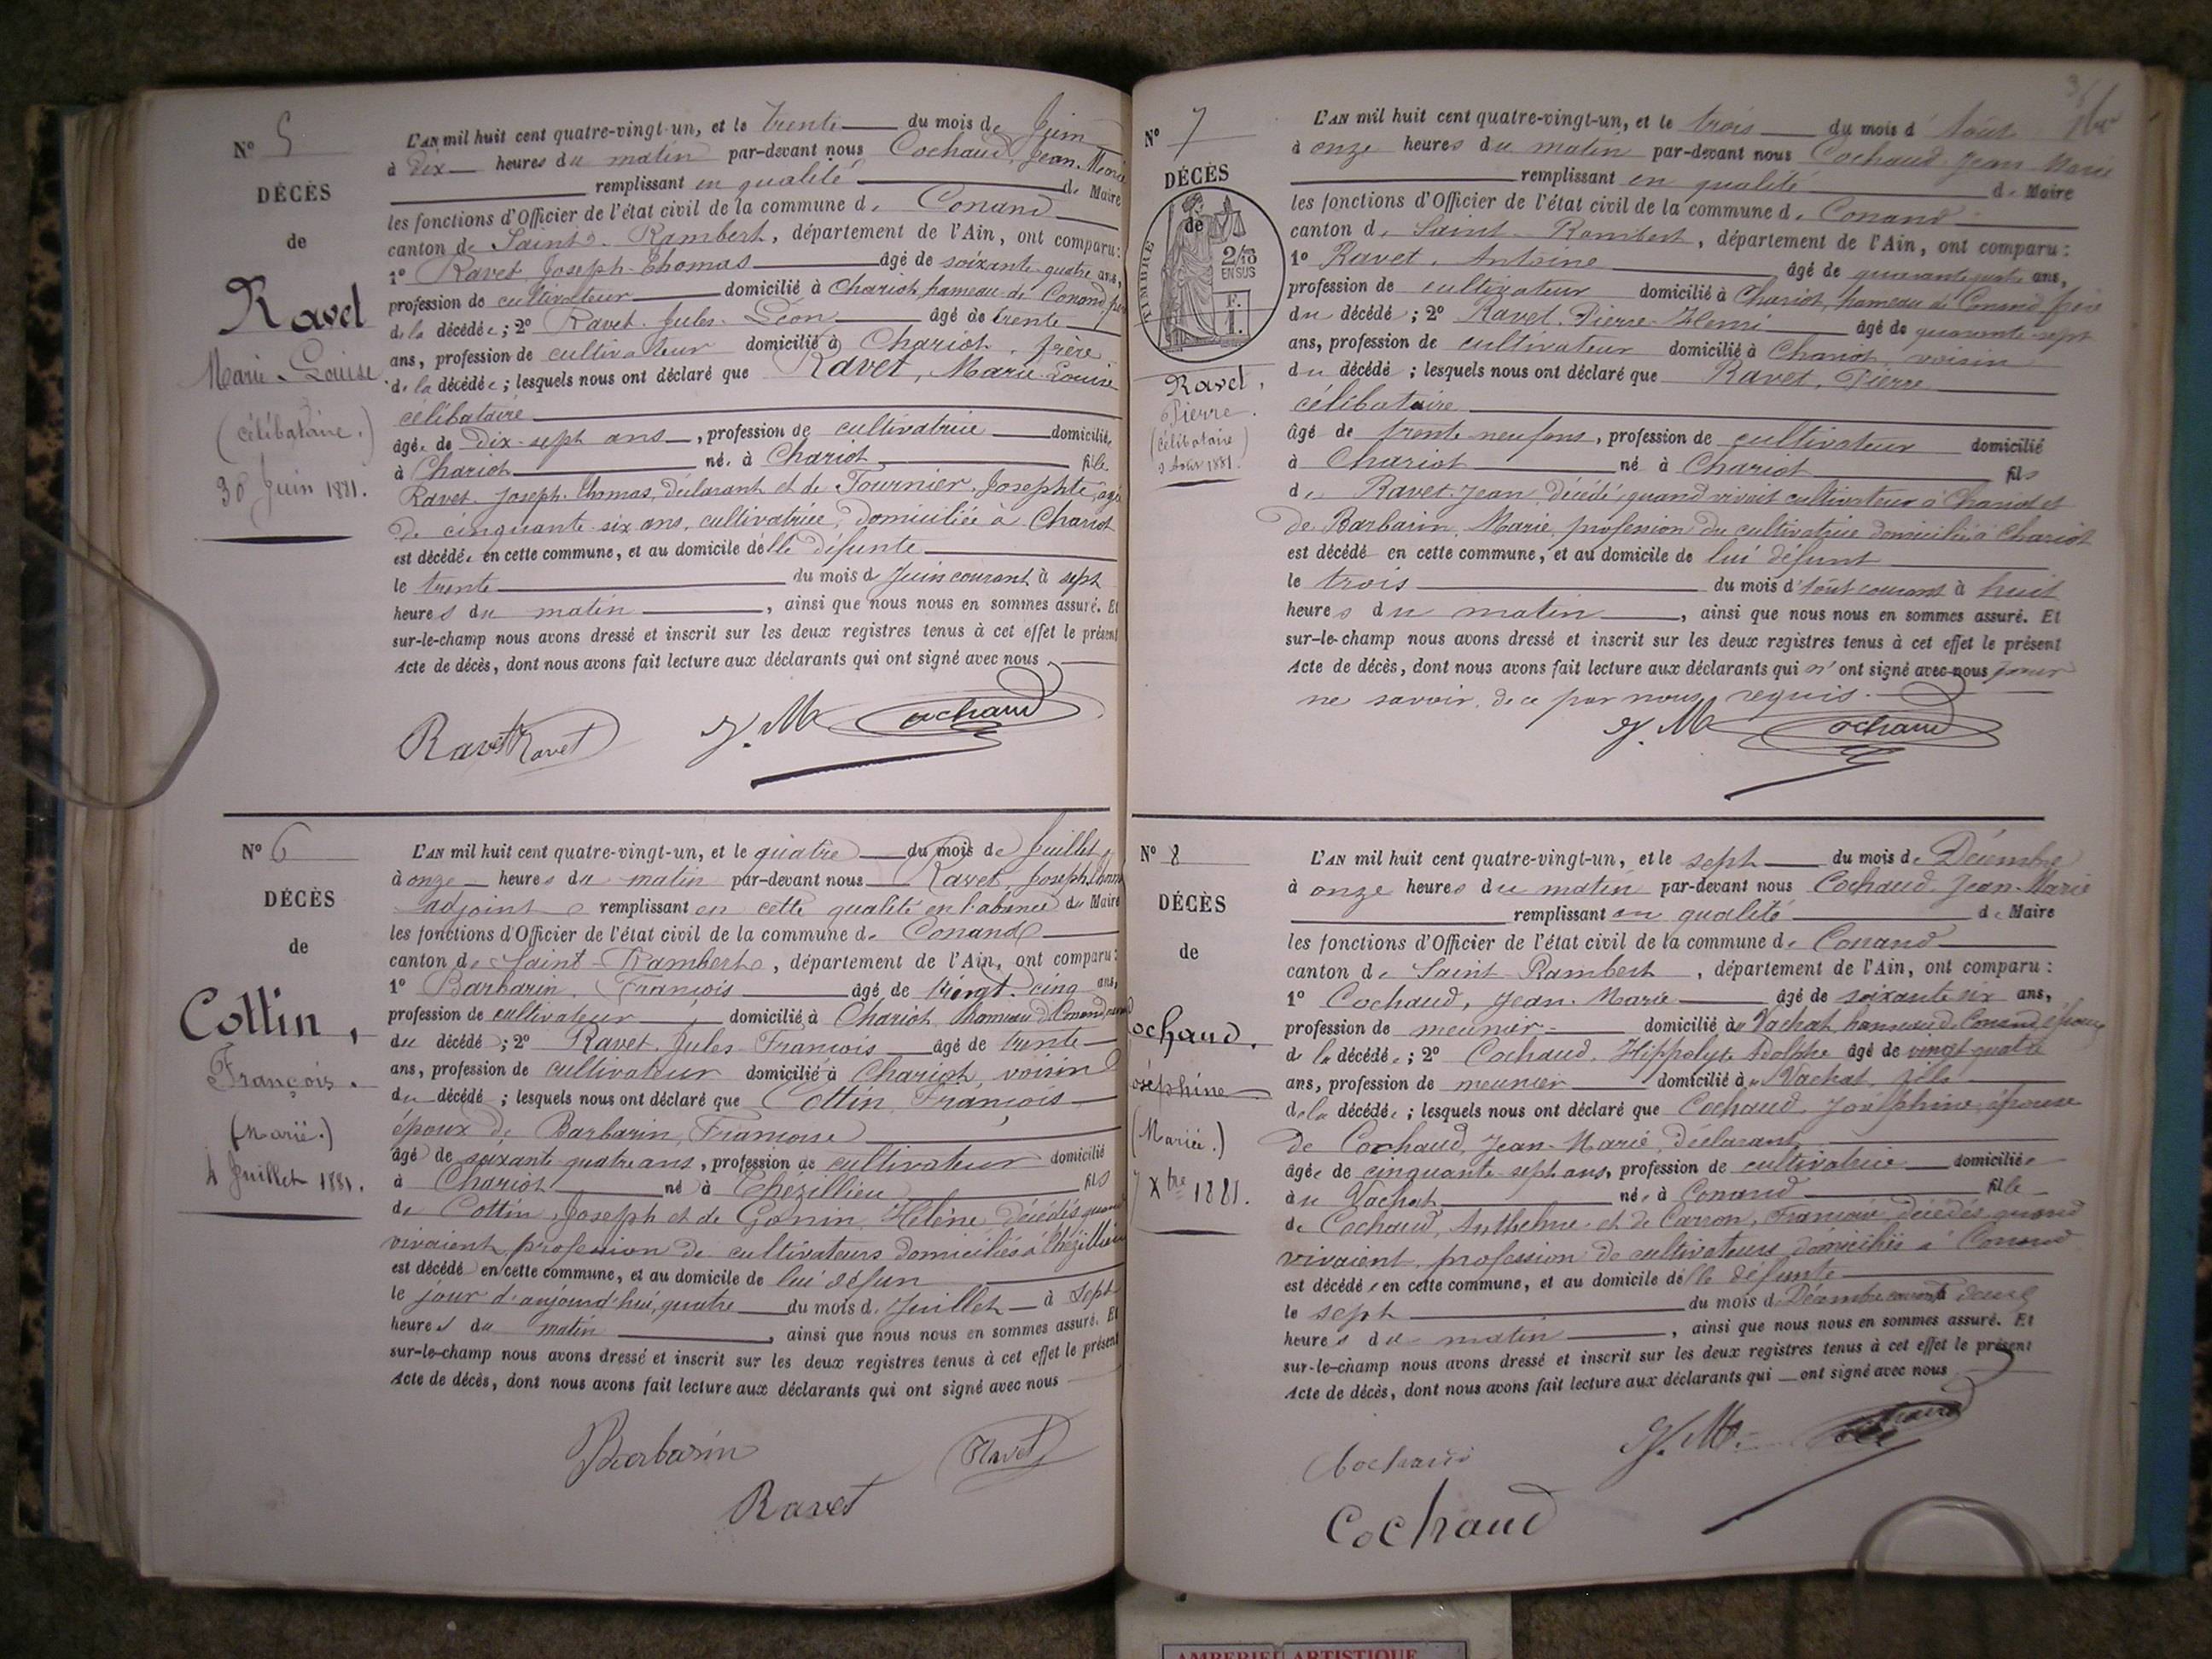 N° 5
DÉCÈS
de
Ravet
Marie-Louise
(célibataire.)
30 Juin 1881.
L'AN mil huit cent quatre-vingt-un, et le trente du mois de Juin
à dix heures du matin par-devant nous Cochaud, Jean-Marie
remplissant en qualité de Maire
les fonctions d'Officier de l'état civil de la commune de Conand
canton de Saint-Rambert, département de l'Ain, ont comparu:
1° Ravet Joseph-Thomas âgé de soixante-quatre ans,
profession de cultivateur domicilié à Chariot hameau de Conand
de la décédée; 2° Ravet Jules-Léon âgé de trente
ans, profession de cultivateur domicilié à Chariot, frère
de la décédée; lesquels nous ont déclaré que Ravet, Marie-Louise
célibataire
âgée de dix-sept ans, profession de cultivatrice domiciliée
à Chariot née à Chariot fille
Ravet Joseph-Thomas, déclarant et de Fournier, Josephte, âgée
de cinquante-six ans, cultivatrice, domiciliée à Chariot
est décédée en cette commune, et au domicile de lle défunte
le trente du mois de Juin courant à sept
heures du matin, ainsi que nous nous en sommes assuré. Et
sur-le-champ nous avons dressé et inscrit sur les deux registres tenus à cet effet le présent
Acte de décès, dont nous avons fait lecture aux déclarants qui ont signé avec nous
Ravet Ravet J. M Cochaud
N° 6
DÉCÈS
de
Cottin,
François.
(Marié.)
4 Juillet 1881.
L'AN mil huit cent quatre-vingt-un, et le quatre du mois de Juillet
à onze heures du matin par-devant nous Ravet, Joseph Thomas
adjoint remplissant en cette qualité en l'absence du Maire
les fonctions d'Officier de l'état civil de la commune de Conand
canton de Saint-Rambert, département de l'Ain, ont comparu:
1° Barbarin, François âgé de vingt-cinq ans,
profession de cultivateur domicilié à Chariot hameau de Conand
du décédé; 2° Ravet Jules François âgé de trente
ans, profession de cultivateur domicilié à Chariot, voisin
du décédé; lesquels nous ont déclaré que Cottin François
époux de Barbarin, Françoise
âgé de soixante quatre ans, profession de cultivateur domicilié
à Chariot né à Thézillieu fils
de Cottin, Joseph et de Gonin, Hélène, décédés quand
vivaient profession de cultivateurs domiciliés à Thézillieu
est décédé en cette commune, et au domicile de lui défun
le jour d'aujourd'hui, quatre du mois de Juillet à sept
heures du matin, ainsi que nous nous en sommes assuré. Et
sur-le-champ nous avons dressé et inscrit sur les deux registres tenus à cet effet le présent
Acte de décès, dont nous avons fait lecture aux déclarants qui ont signé avec nous
Barbarin Ravet
Ravet
N° 7
DÉCÈS
de
TIMBRE
2/10
EN SUS
F.
1.
Ravet,
Pierre.
(célibataire)
3 Août 1881.
L'AN mil huit cent quatre-vingt-un, et le trois du mois d'Août
à onze heures du matin par-devant nous Cochaud Jean-Marie
remplissant en qualité de Maire
les fonctions d'Officier de l'état civil de la commune de Conand
canton de Saint-Rambert, département de l'Ain, ont comparu:
1° Ravet, Antoine âgé de quarante quatre ans,
profession de cultivateur domicilié à Chariot, hameau de Conand frère
du décédé; 2° Ravet, Pierre-Henri âgé de quarante-sept
ans, profession de cultivateur domicilié à Chariot voisin
du décédé; lesquels nous ont déclaré que Ravet, Pierre
célibataire
âgé de trente neuf ans, profession de cultivateur domicilié
à Chariot né à Chariot fils
de Ravet Jean décédé, quand vivait cultivateur à Chariot et
de Barbarin, Marie, profession de cultivatrice domiciliée à Chariot
est décédé en cette commune, et au domicile de lui défunt
le trois du mois d'Août courant à huit
heures du matin, ainsi que nous nous en sommes assuré. Et
sur-le-champ nous avons dressé et inscrit sur les deux registres tenus à cet effet le présent
Acte de décès, dont nous avons fait lecture aux déclarants qui n'ont signé avec nous pour
ne savoir, de ce par nous requis.
J. M Cochaud
N° 8
DÉCÈS
de
ochaud.
oséphine
(Mariée.)
7 Xbre 1881.
L'AN mil huit cent quatre-vingt-un, et le sept du mois de Décembre
à onze heures du matin par-devant nous Cochaud Jean-Marie
remplissant en qualité de Maire
les fonctions d'Officier de l'état civil de la commune de Conand
canton de Saint-Rambert, département de l'Ain, ont comparu:
1° Cochaud, Jean-Marie âgé de soixante six ans,
profession de meunier domicilié à u Vachat hameau de Conand, époux
de la décédée; 2° Cochaud, Hippolyte Adolphe âgé de vingt quatre
ans, profession de meunier domicilié à u Vachat, fils
de la décédée; lesquels nous ont déclaré que Cochaud, Joséphine, épouse
de Cochaud, Jean-Marie, déclarant
âgée de cinquante-sept ans, profession de cultivatrice domiciliée
au Vachat née à Conand fille
de Cochaud, Anthelme et de Carron, Françoise décédés, quand
vivaient, profession de cultivateurs domiciliés à Conand
est décédée en cette commune, et au domicile de lle défunte
le sept du mois de Décembre courant à deux
heures du matin, ainsi que nous nous en sommes assuré. Et
sur-le-champ nous avons dressé et inscrit sur les deux registres tenus à cet effet le présent
Acte de décès, dont nous avons fait lecture aux déclarants qui ont signé avec nous
Cochaud J. M. Cochaud
Cochaud
AMBERIEU ARTISTIQUE